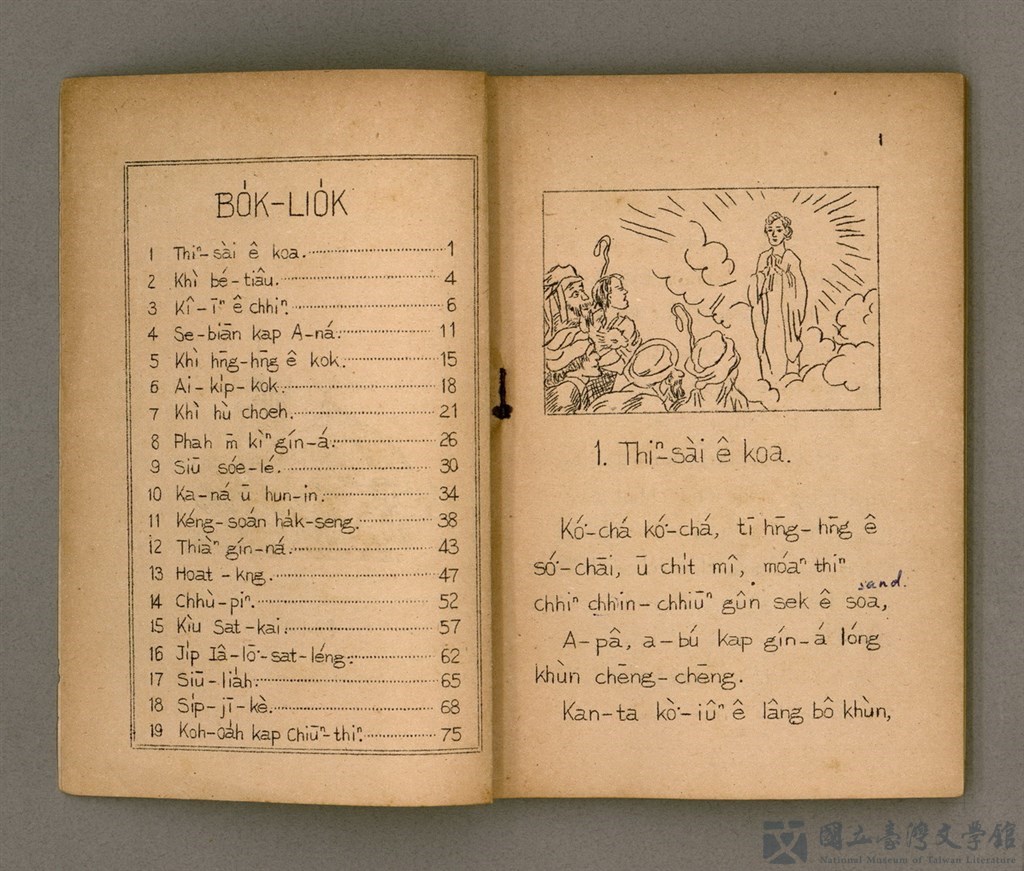 BO̍K-LIO̍K
1 Thiⁿ-sài ê koa. 1
2 Khì bé-tiâu. 4
3 Kî-īⁿ ê chhiⁿ. 6
4 Se-biān kap A-ná. 11
5 Khì hn̄g-hn̄g ê kok. 15
6 Ai-ki̍p-kok. 18
7 Khì hù choeh. 21
8 Phah m̄ kìⁿ gín-á. 26
9 Siū sóe-lé. 30
10 Ka-ná ū hun-in. 34
11 Kéng-soán ha̍k-seng. 38
12 Thiàⁿ gín-ná. 43
13 Hoat-kng. 47
14 Chhù-pīⁿ. 52
15 Kìu Sat-kai. 57
16 Ji̍p Iâ-lō͘-sat-léng. 62
17 Siū-lia̍h. 65
18 Si̍p-jī-kè. 68
19 Koh-oa̍h kap Chiūⁿ-thiⁿ. 75
1
1. Thiⁿ-sài ê koa.
Kó͘-chá kó͘-chá, tī hn̄g-hn̄g ê
só͘-chāi, ū chi̍t mî, móaⁿ thiⁿ
sand.
chhiⁿ chhin-chhiūⁿ gûn sek ê soa,
A-pâ, a-bú kap gín-á lóng
khùn chēng-chēng.
Kan-ta kò͘-iûⁿ ê lâng bô khùn,
國立臺灣文學館
National Museum of Taiwan Literature